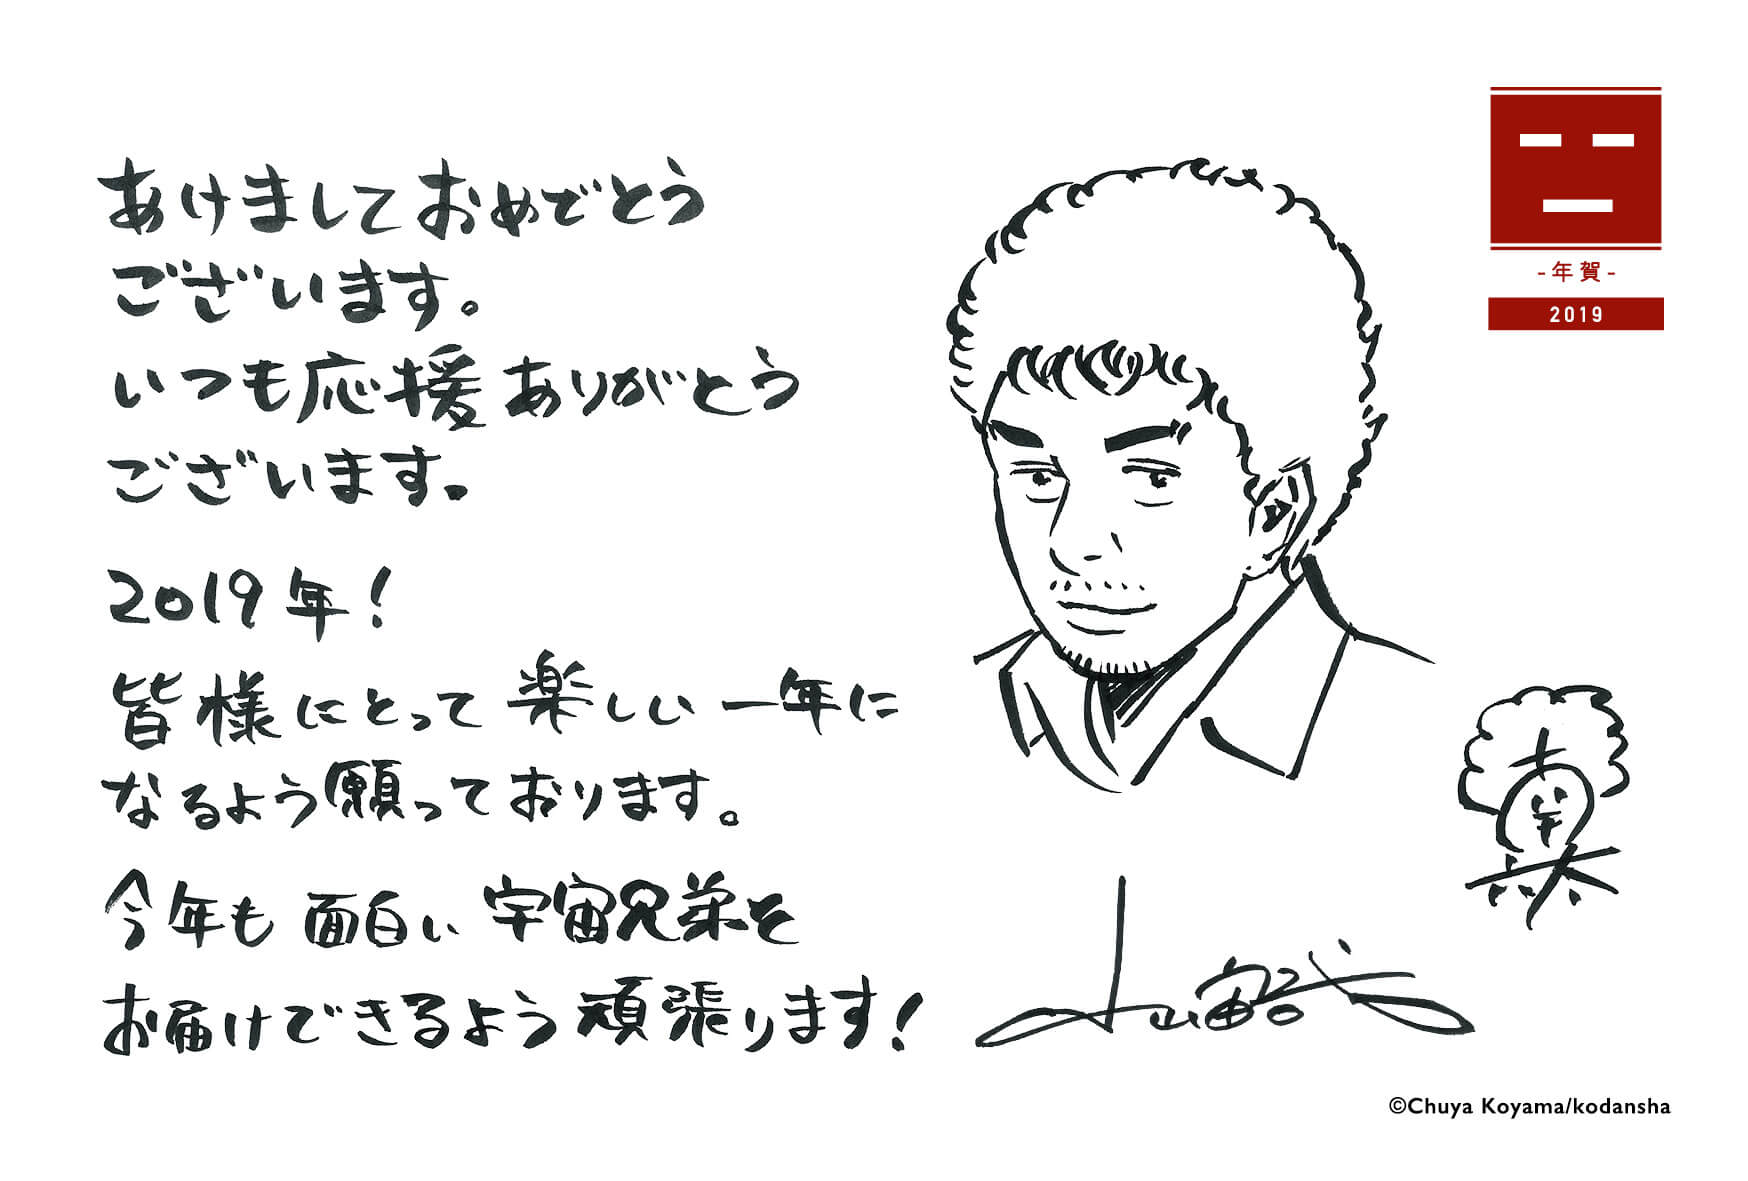 あけましておめでとう
ございます。
いつも応援ありがとう
ございます。
2019年!
皆様にとって楽しい一年に
なるよう願っております。
今年も面白い宇宙兄弟を
お届けできるよう頑張ります!
-年賀-
2019
小山宙哉
©Chuya Koyama/kodansha